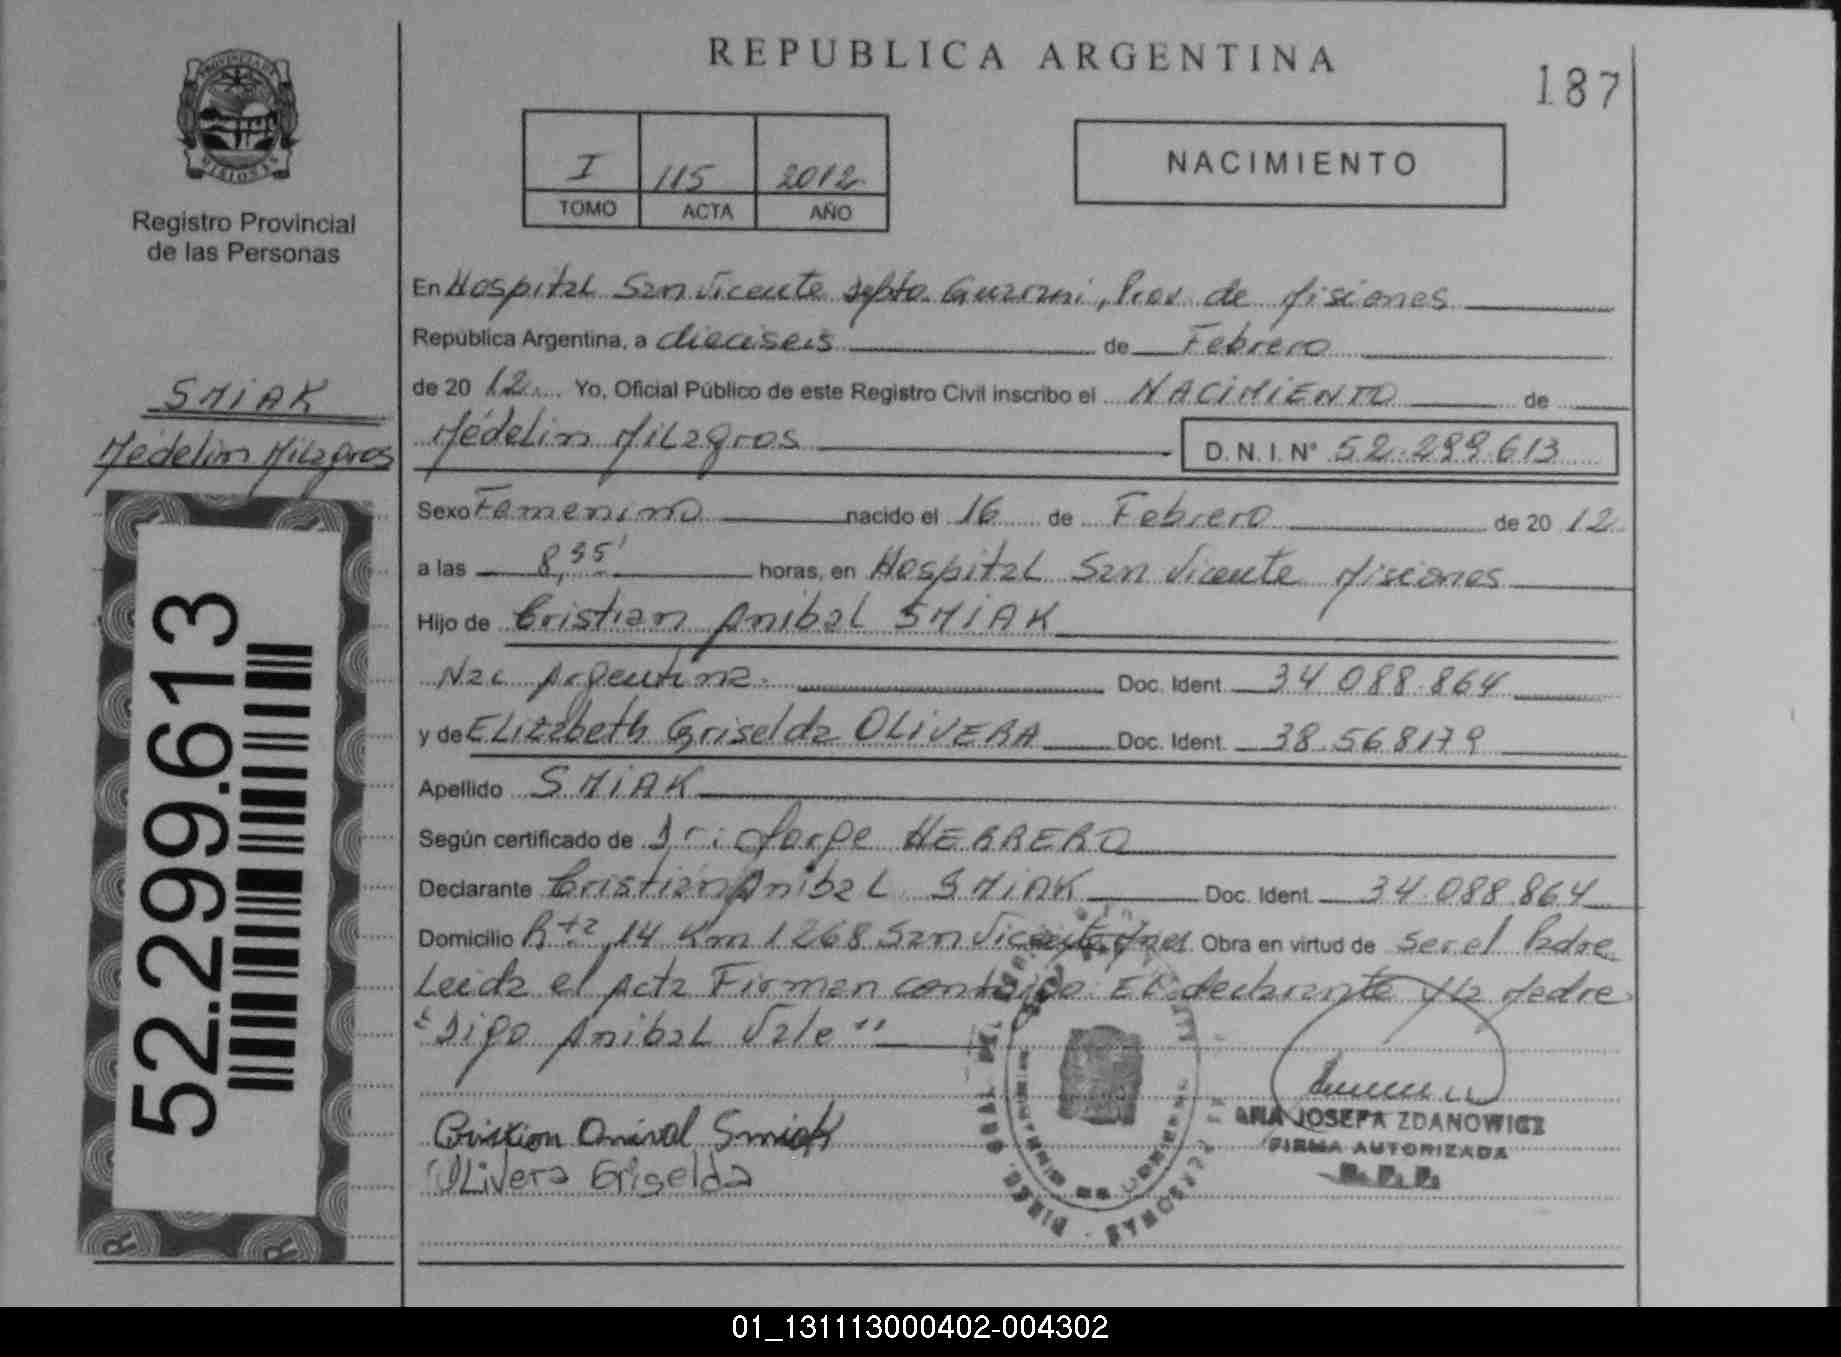 REPUBLICA ARGENTINA
187
PROVINCIA DE
MISIONES
Registro Provincial
de las Personas
I 115 2012
TOMO ACTA AÑO
NACIMIENTO
En Hospital San Vicente Dpto. Guarani, Prov. de Misiones
República Argentina, a dieciseis de Febrero
de 20 12 Yo, Oficial Público de este Registro Civil inscribo el NACIMIENTO de
SMIAK
Médelin Milagros
Médelin Milagros D.N.I. N° 52.299.613
Sexo Femenino nacido el 16 de Febrero de 20 12
a las 8,35' horas, en Hospital San Vicente Misiones
Hijo de Cristian Anibal SMIAK
Nac Argentina Doc. Ident. 34.088.864
y de Elizabeth Griselda OLIVERA Doc. Ident. 38.568179
Apellido SMIAK
Según certificado de Dr: Jorge HERRERO
Declarante Cristian Anibal SMIAK Doc. Ident. 34.088.864
Domicilio Rta 14 Km 1268 San Vicente Obra en virtud de ser el Padre
Leida el Acta Firman conmigo El declarante y la Madre
"Digo Anibal Vale"
52.299.613
Cristion Anival Smiak
Olivera Griselda
ANA JOSEFA ZDANOWICZ
FIRMA AUTORIZADA
R.P.P.
01_131113000402-004302